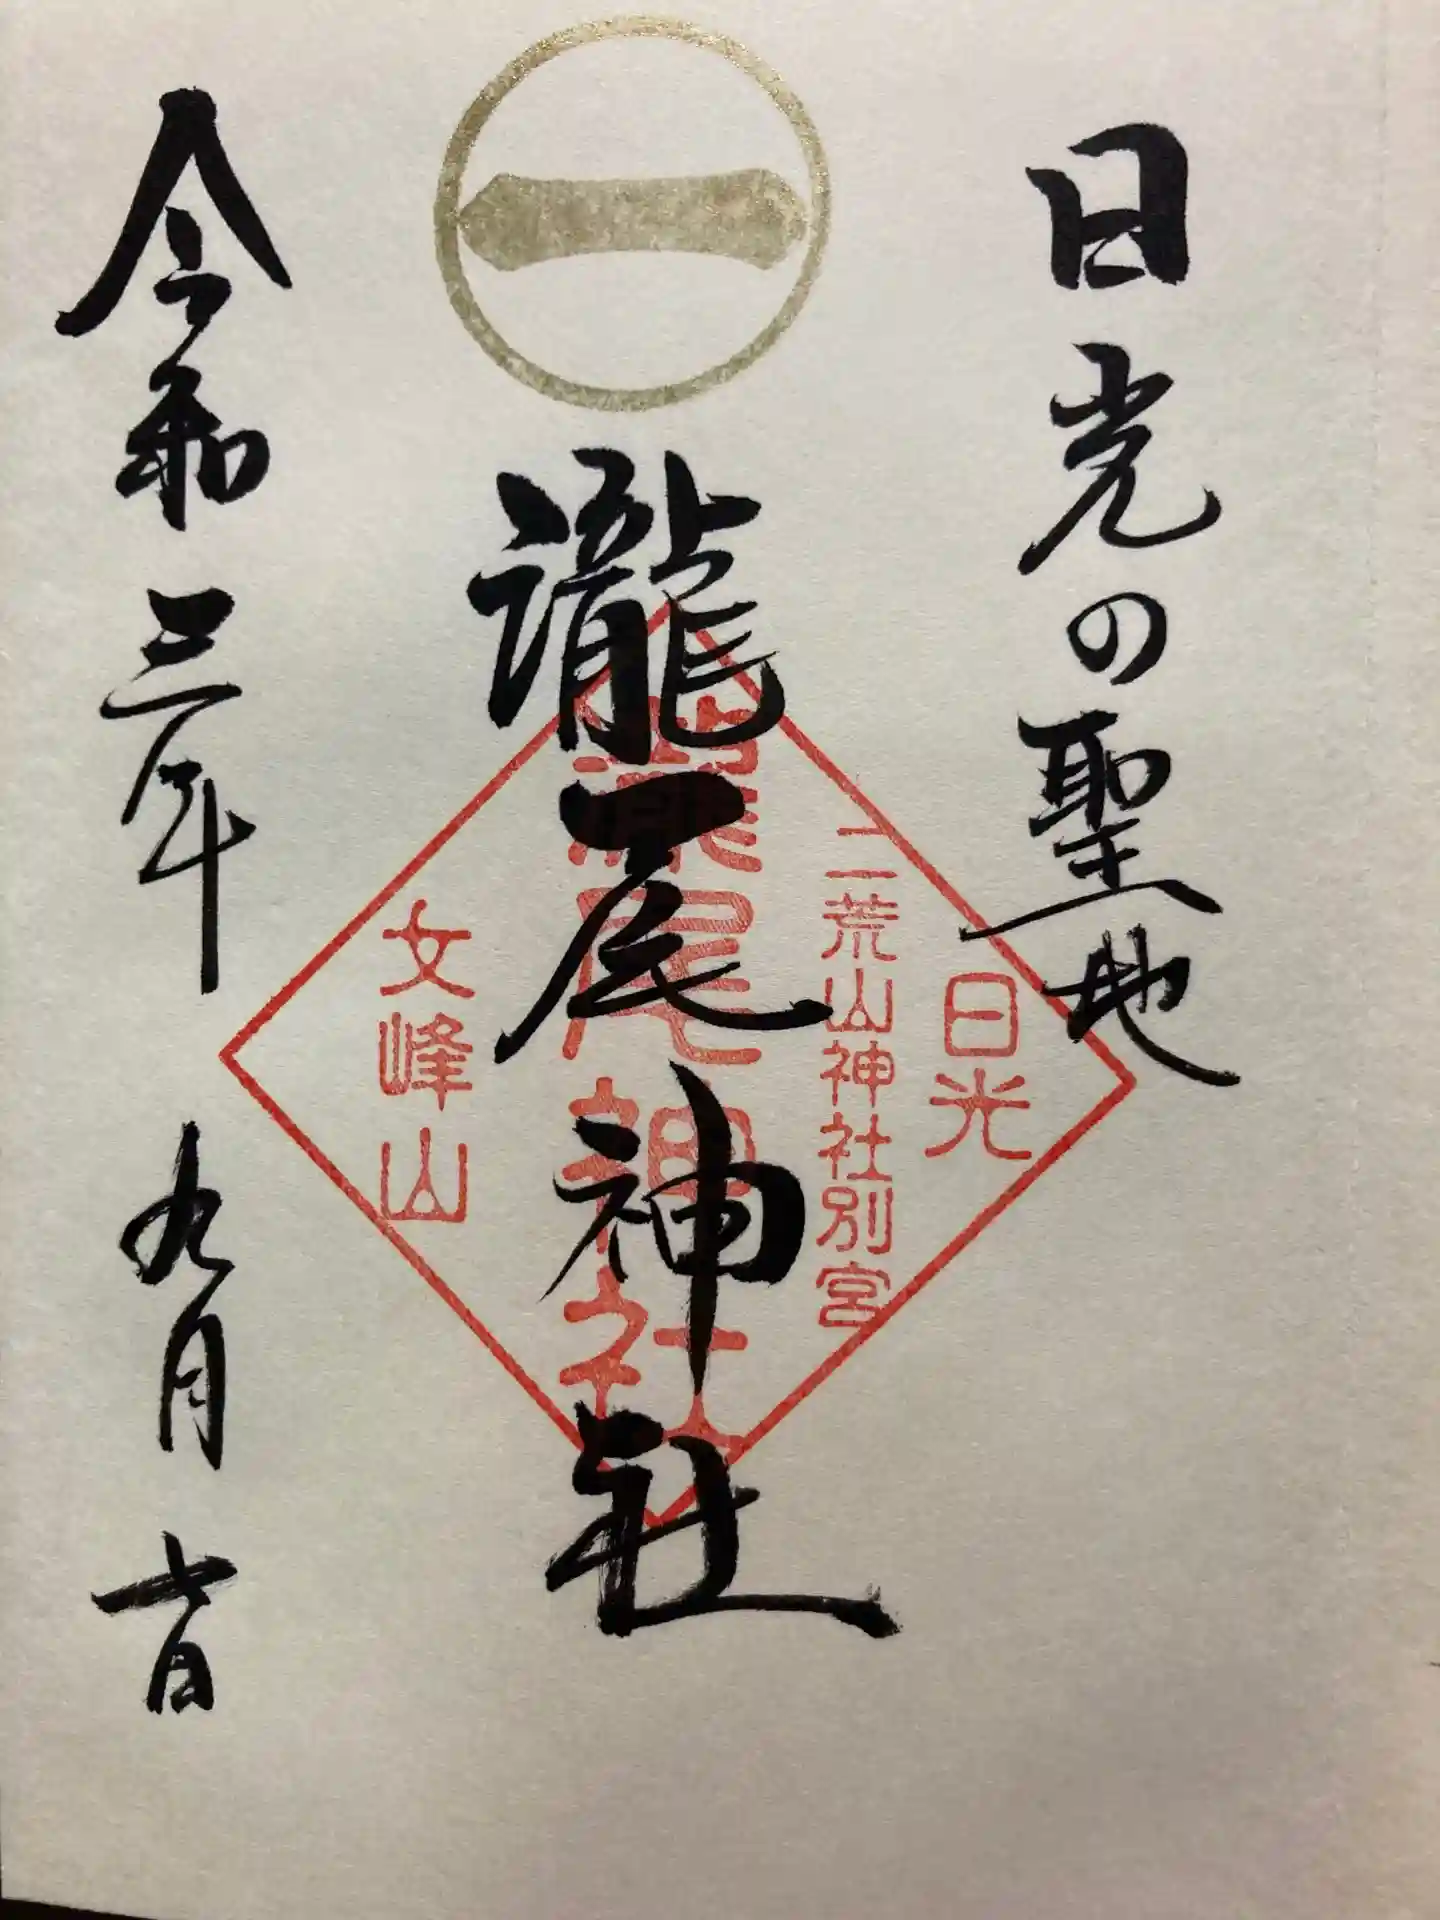 一
日光の聖地
瀧尾神社
令和三年 九月 日
日光
二荒山神社別宮
瀧尾神社
女峰山